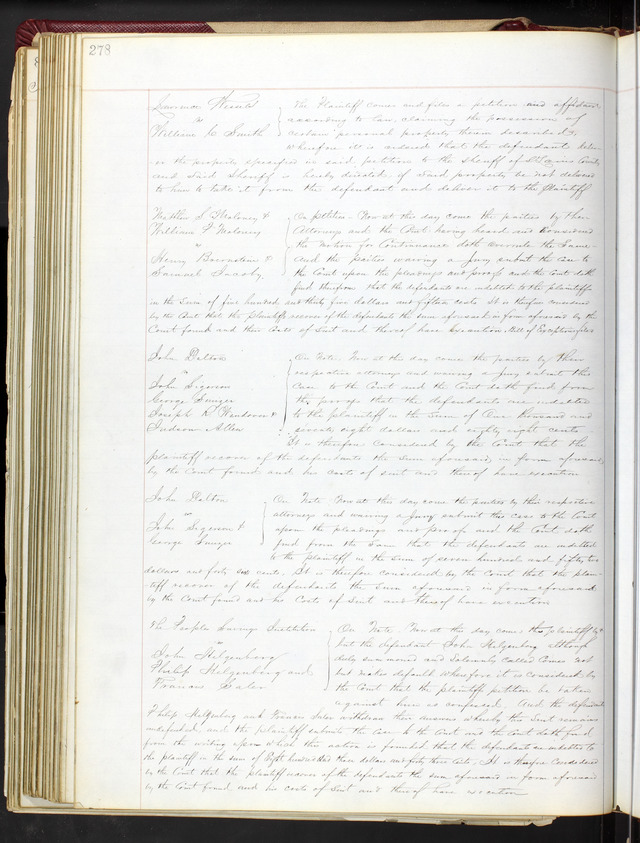 278
The Plaintiff comes and files a petition and affidavit
vs
according to law, claiming the possession of
William C Smith
certain personal property therein described,
Wherefore it is ordered that the defendants deliver
the property specified in said petition to the Sheriff of St Louis County
and said Sheriff is hereby directed if said property be not delivered
to him to take it from the defendant and deliver it to the Plaintiff
S Maloney &
William P Maloney
vs
Henry Bernstein &
Samuel
On petition. Now at this day come the parties by their
Attorneys and the Court having heard and considered
the motion for Continuance doth overrule the same
and the parties waiving a Jury submit the case to
the Court upon the pleadings and proofs and the Court doth
find therefrom that the defendants are indebted to the plaintiffs
in the sum of five hundred and thirty five dollars and fifteen cents It is therefore considered
by the Court that the plaintiffs recover of the defendants the sum aforesaid in form aforesaid by the
Court found and their costs of suit and thereof have execution. Bill of Exceptions filed
John Dalton
vs
John Sigerson
George
Joseph R Windsor &
Judson Allen
On Note. Now at this day come the parties by their
respective attorneys and waiving a jury submit this
case to the Court and the Court doth find from
the proofs that the defendants are indebted
to the plaintiff in the sum of One thousand and
seventy eight dollars and eighty eight cents
It is therefore considered by the Court that the
plaintiff recover of the defendants the sum aforesaid in form aforesaid
by the Court found and his costs of suit and thereof have execution
John Dalton
vs
John Sigerson &
George
On Note Now at this day come the parties by their respective
attorneys and waiving a Jury submit this case to the Court
upon the pleadings and proofs and the Court doth
find from the same that the defendants are indebted
to the plaintiff in the sum of seven hundred and fifty two
dollars and forty six cents. It is therefore considered by the Court that the plain-
tiff recover of the defendants the sum aforesaid in form aforesaid
by the Court found and his costs of suit and thereof have execution
The Peoples Savings Institution
vs
John Helgenberg
Philip Helgenberg and
Francis Saler
On Note. Now at this day comes the plaintiff by
but the defendant John Helgenberg though
duly summoned and solemnly called comes not
but makes default wherefore it is considered by
the Court that the plaintiffs petition be taken
against him as confessed. And the defendants
Philip Helgenberg and Francis Saler withdraw their answers whereby this suit remains
undefended, and the plaintiff submits the case to the Court and the Court doth find
from the writing upon which this action is founded that the defendants are indebted to
the plaintiff in the sum of Eight hundred and three dollars and forty three cents, It is therefore Considered
by the Court that the plaintiff recover of the defendants the sum aforesaid in form aforesaid
by the Court found and his costs of suit and thereof have execution